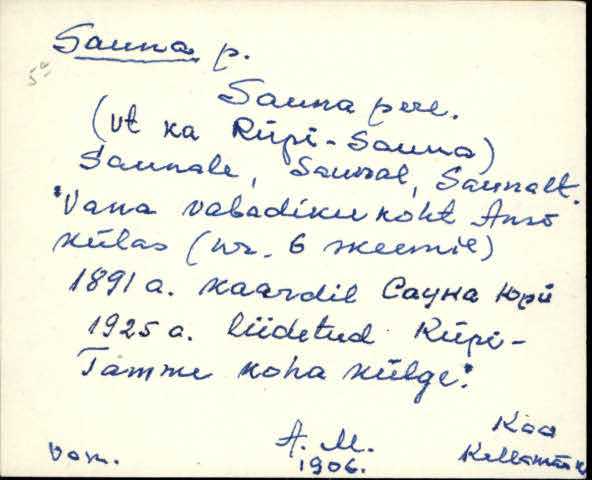 Sauna p.
Sauna pere.
(vt ka Rüpi-Sauna)
Saunale, Saunal, Saunalt.
"Vana vabadiku koht Ansi
külas (nr. 6 skeemil)
1891 a. kaardil Сауна Юри
1925 a. liidetud Rüpi-
Tamme koha külge."
A. M.
1906.